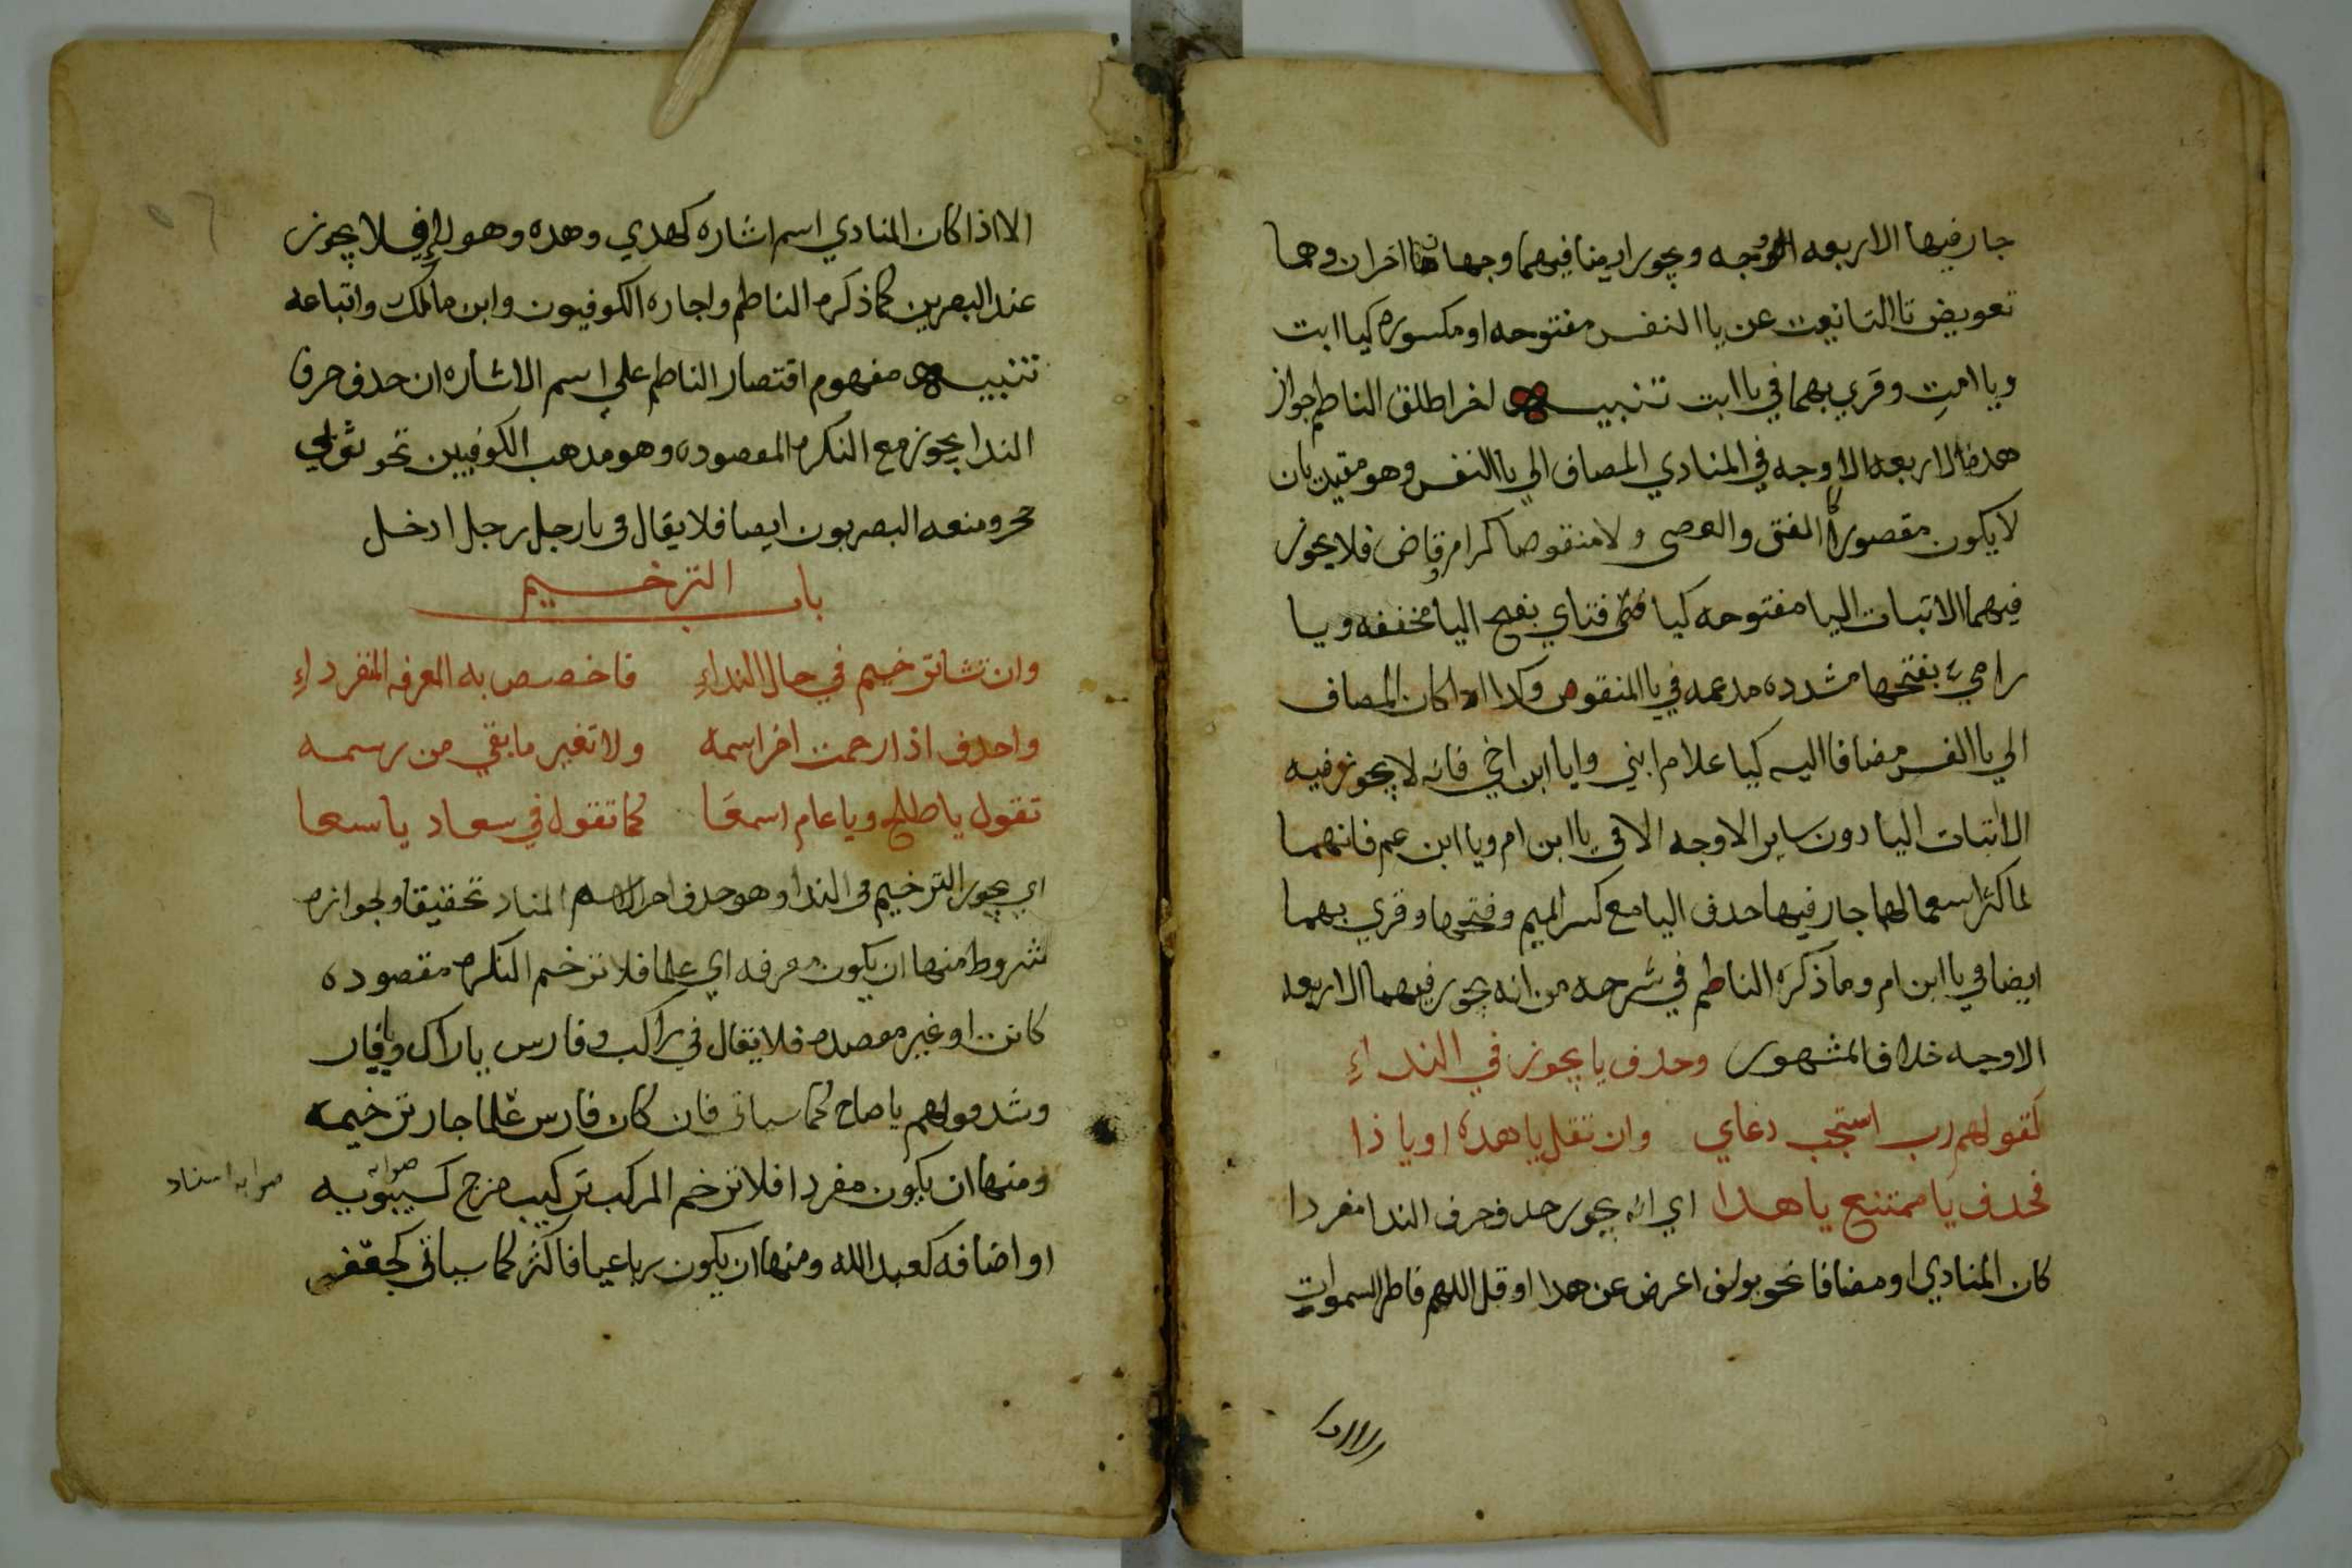 جار فيها الاربعه الاوجه ويجور ايضا فيهما وجهان اخران وهما
تعويض تا التانيث عن يا النفس مفتوحه او مكسوره كيا ابت
ويا امتِ وقري بهما في يا ابت تنبيه اخر اطلق الناظم جواز
هده الاربعه الاوجه في المنادي المضاف الي يا النفس وهو مقيد بان
لا يكون مقصورا كالفتى والعصى ولا منقوصا كرام وقاض فلا يجوز
فيهما الا تبات اليا مفتوحه كيا فتاي بفتح اليا مخففه ويا
رامي بفتحها مشدده مدعمه في يا المنقوص وكدا ادا كان المضاف
الي يا النفس مضافا اليه كيا علام ابني وايا ابن اخي فانه لا يجوز فيه
الا اتبات اليا دون ساير الاوجه الا في يا ابن ام ويا ابن عم فانهما
لما كثر اسعمالهما جار فيها حدف اليا مع كسر الميم وفتحها وقري بهما
ايضا في يا ابن ام وما ذكره الناظم في شرحه من انه يجور فيهما الاربعه
الاوجه خلاف المشهور وحدف يا يجوز في النداءِ
كقولهم رب استجب دعاي وان تقل يا هده او يا ذا
فحدف يا ممتنع يا هدا اي انه يجور حدف حرف الندا مفردا
كان المنادي او مضافا نحو يوسف اعرض عن هدا او قل اللهم فاطر السموات
الا اذا كان المنادي اسم اشاره كهدي وهده وهولاء فلا يجوز
عند البصرين كما ذكره الناظم واجاره الكوفيون وابن مالك واتباعه
تنبيه مفهوم اقتصار الناظم علي اسم الاشاره ان حدف حرف
الندا يجوز مع النكره المقصوده وهو مدهب الكوفيين نحو ثوبي
حجر ومنعه البصريون ايضا فلا يقال في يا رجل رجل ادخل
باب الترخيم
وان تشا ترخيم في حال النداءِ فاخصص به المعرفه المنفرداءِ
واحدف اذا رحمت اخر اسمه ولا تغير ما بقي من رسمه
تقول يا طلح ويا عام اسمعَا كما تقول في سعاد يا سعا
اي يجور الترخيم في الندا وهو حدف اخر الاسم المناد تخفيفا ولجوازه
شروط منها ان يكون معرفه اي علما فلا ترخم النكره مقصوده
كانت او غير مقصده فلا يقال في راكب وفارس يا راك ويا فار
وشد قولهم يا صاح كما سياتي فان كان فارس علما جار ترخيمه
ومنها ان يكون مفردا فلا ترخم المركب تركيب مزج كسيبويه
صوابه
صوابه اسناد
او اضافه كعبد الله ومنها ان يكون رباعيا فاكثر كما سياتي كجعفر